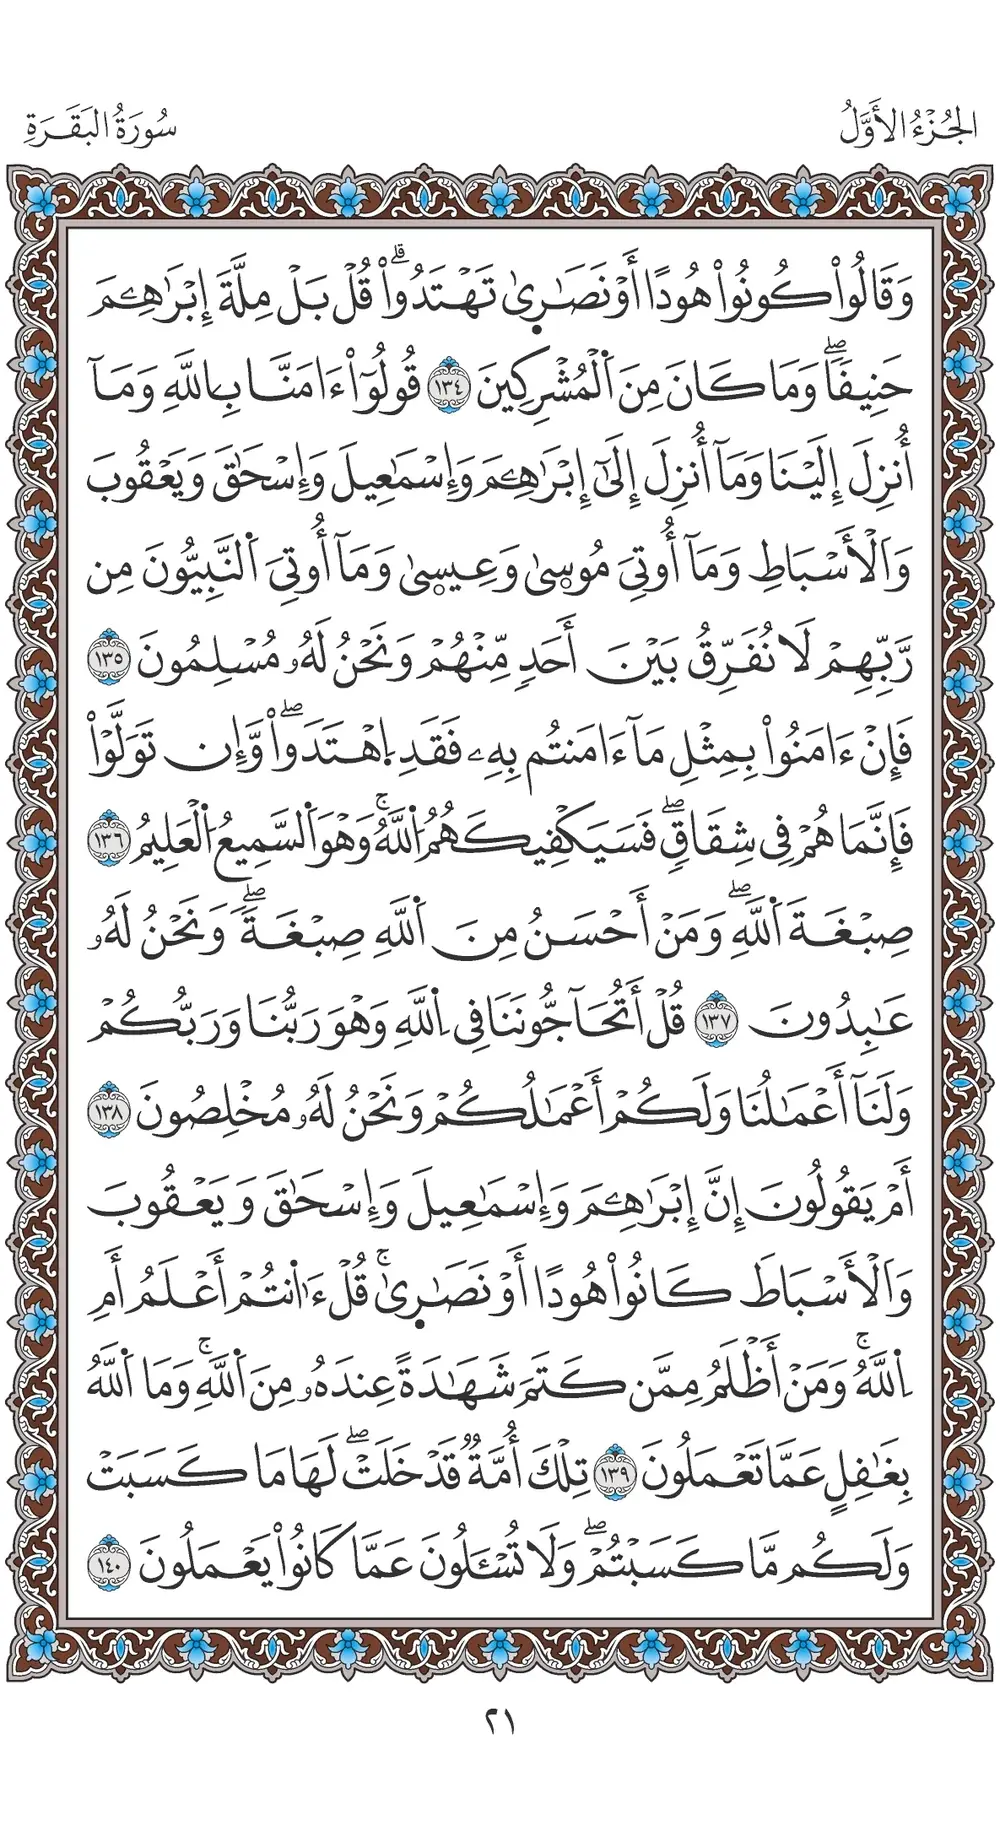 الجُزْءُ الأَوَّلُ
سُورَةُ البَقَرَةِ
وَقَالُواْ كُونُواْ هُودًا أَوْ نَصَٰرٜىٰ تَهْتَدُواْۗ قُلْ بَلْ مِلَّةَ إِبْرَٰهِـۧمَ
حَنِيفًاۖ وَمَا كَانَ مِنَ اَ۬لْمُشْرِكِينَ ١٣٤ قُولُوٓاْ ءَامَنَّا بِاللَّهِ وَمَآ
أُنزِلَ إِلَيْنَا وَمَآ أُنزِلَ إِلَىٰٓ إِبْرَٰهِـۧمَ وَإِسْمَٰعِيلَ وَإِسْحَٰقَ وَيَعْقُوبَ
وَاَلْأَسْبَاطِ وَمَآ أُوتِيَ مُوسٜىٰ وَعِيسٜىٰ وَمَآ أُوتِيَ اَ۬لنَّبِيُّونَ مِن
رَّبِّهِمْ لَا نُفَرِّقُ بَيْنَ أَحَدٍ مِّنْهُمْ وَنَحْنُ لَهُۥ مُسْلِمُونَ ١٣٥
فَإِنْ ءَامَنُواْ بِمِثْلِ مَآ ءَامَنتُم بِهِۦ فَقَدِ اِ۪هْتَدَواْۖ وَّإِن تَوَلَّوْاْ
فَإِنَّمَا هُمْ فِي شِقَاقٍۖ فَسَيَكْفِيكَهُمُ اُ۬للَّهُۚ وَهْوَ اَ۬لسَّمِيعُ اُ۬لْعَلِيمُ ١٣٦
صِبْغَةَ اَ۬للَّهِۖ وَمَنْ أَحْسَنُ مِنَ اَ۬للَّهِ صِبْغَةًۖ وَنَحْنُ لَهُۥ
عَٰبِدُونَ ١٣٧ قُلْ أَتُحَآجُّونَنَا فِي اِ۬للَّهِ وَهْوَ رَبُّنَا وَرَبُّكُمْ
وَلَنَآ أَعْمَٰلُنَا وَلَكُمْ أَعْمَٰلُكُمْ وَنَحْنُ لَهُۥ مُخْلِصُونَ ١٣٨
أَمْ يَقُولُونَ إِنَّ إِبْرَٰهِـۧمَ وَإِسْمَٰعِيلَ وَإِسْحَٰقَ وَيَعْقُوبَ
وَاَلْأَسْبَاطَ كَانُواْ هُودًا أَوْ نَصَٰرٜىٰۚ قُلْ ءَا۬نتُمْ أَعْلَمُ أَمِ
اِ۬للَّهُۚ وَمَنْ أَظْلَمُ مِمَّن كَتَمَ شَهَٰدَةً عِندَهُۥ مِنَ اَ۬للَّهِۚ وَمَا اَ۬للَّهُ
بِغَٰفِلٍ عَمَّا تَعْمَلُونَ ١٣٩ تِلْكَ أُمَّةٌ قَدْ خَلَتْۖ لَهَا مَا كَسَبَتْ
وَلَكُم مَّا كَسَبْتُمْۖ وَلَا تُسْـَٔلُونَ عَمَّا كَانُواْ يَعْمَلُونَ ١٤٠
٢١